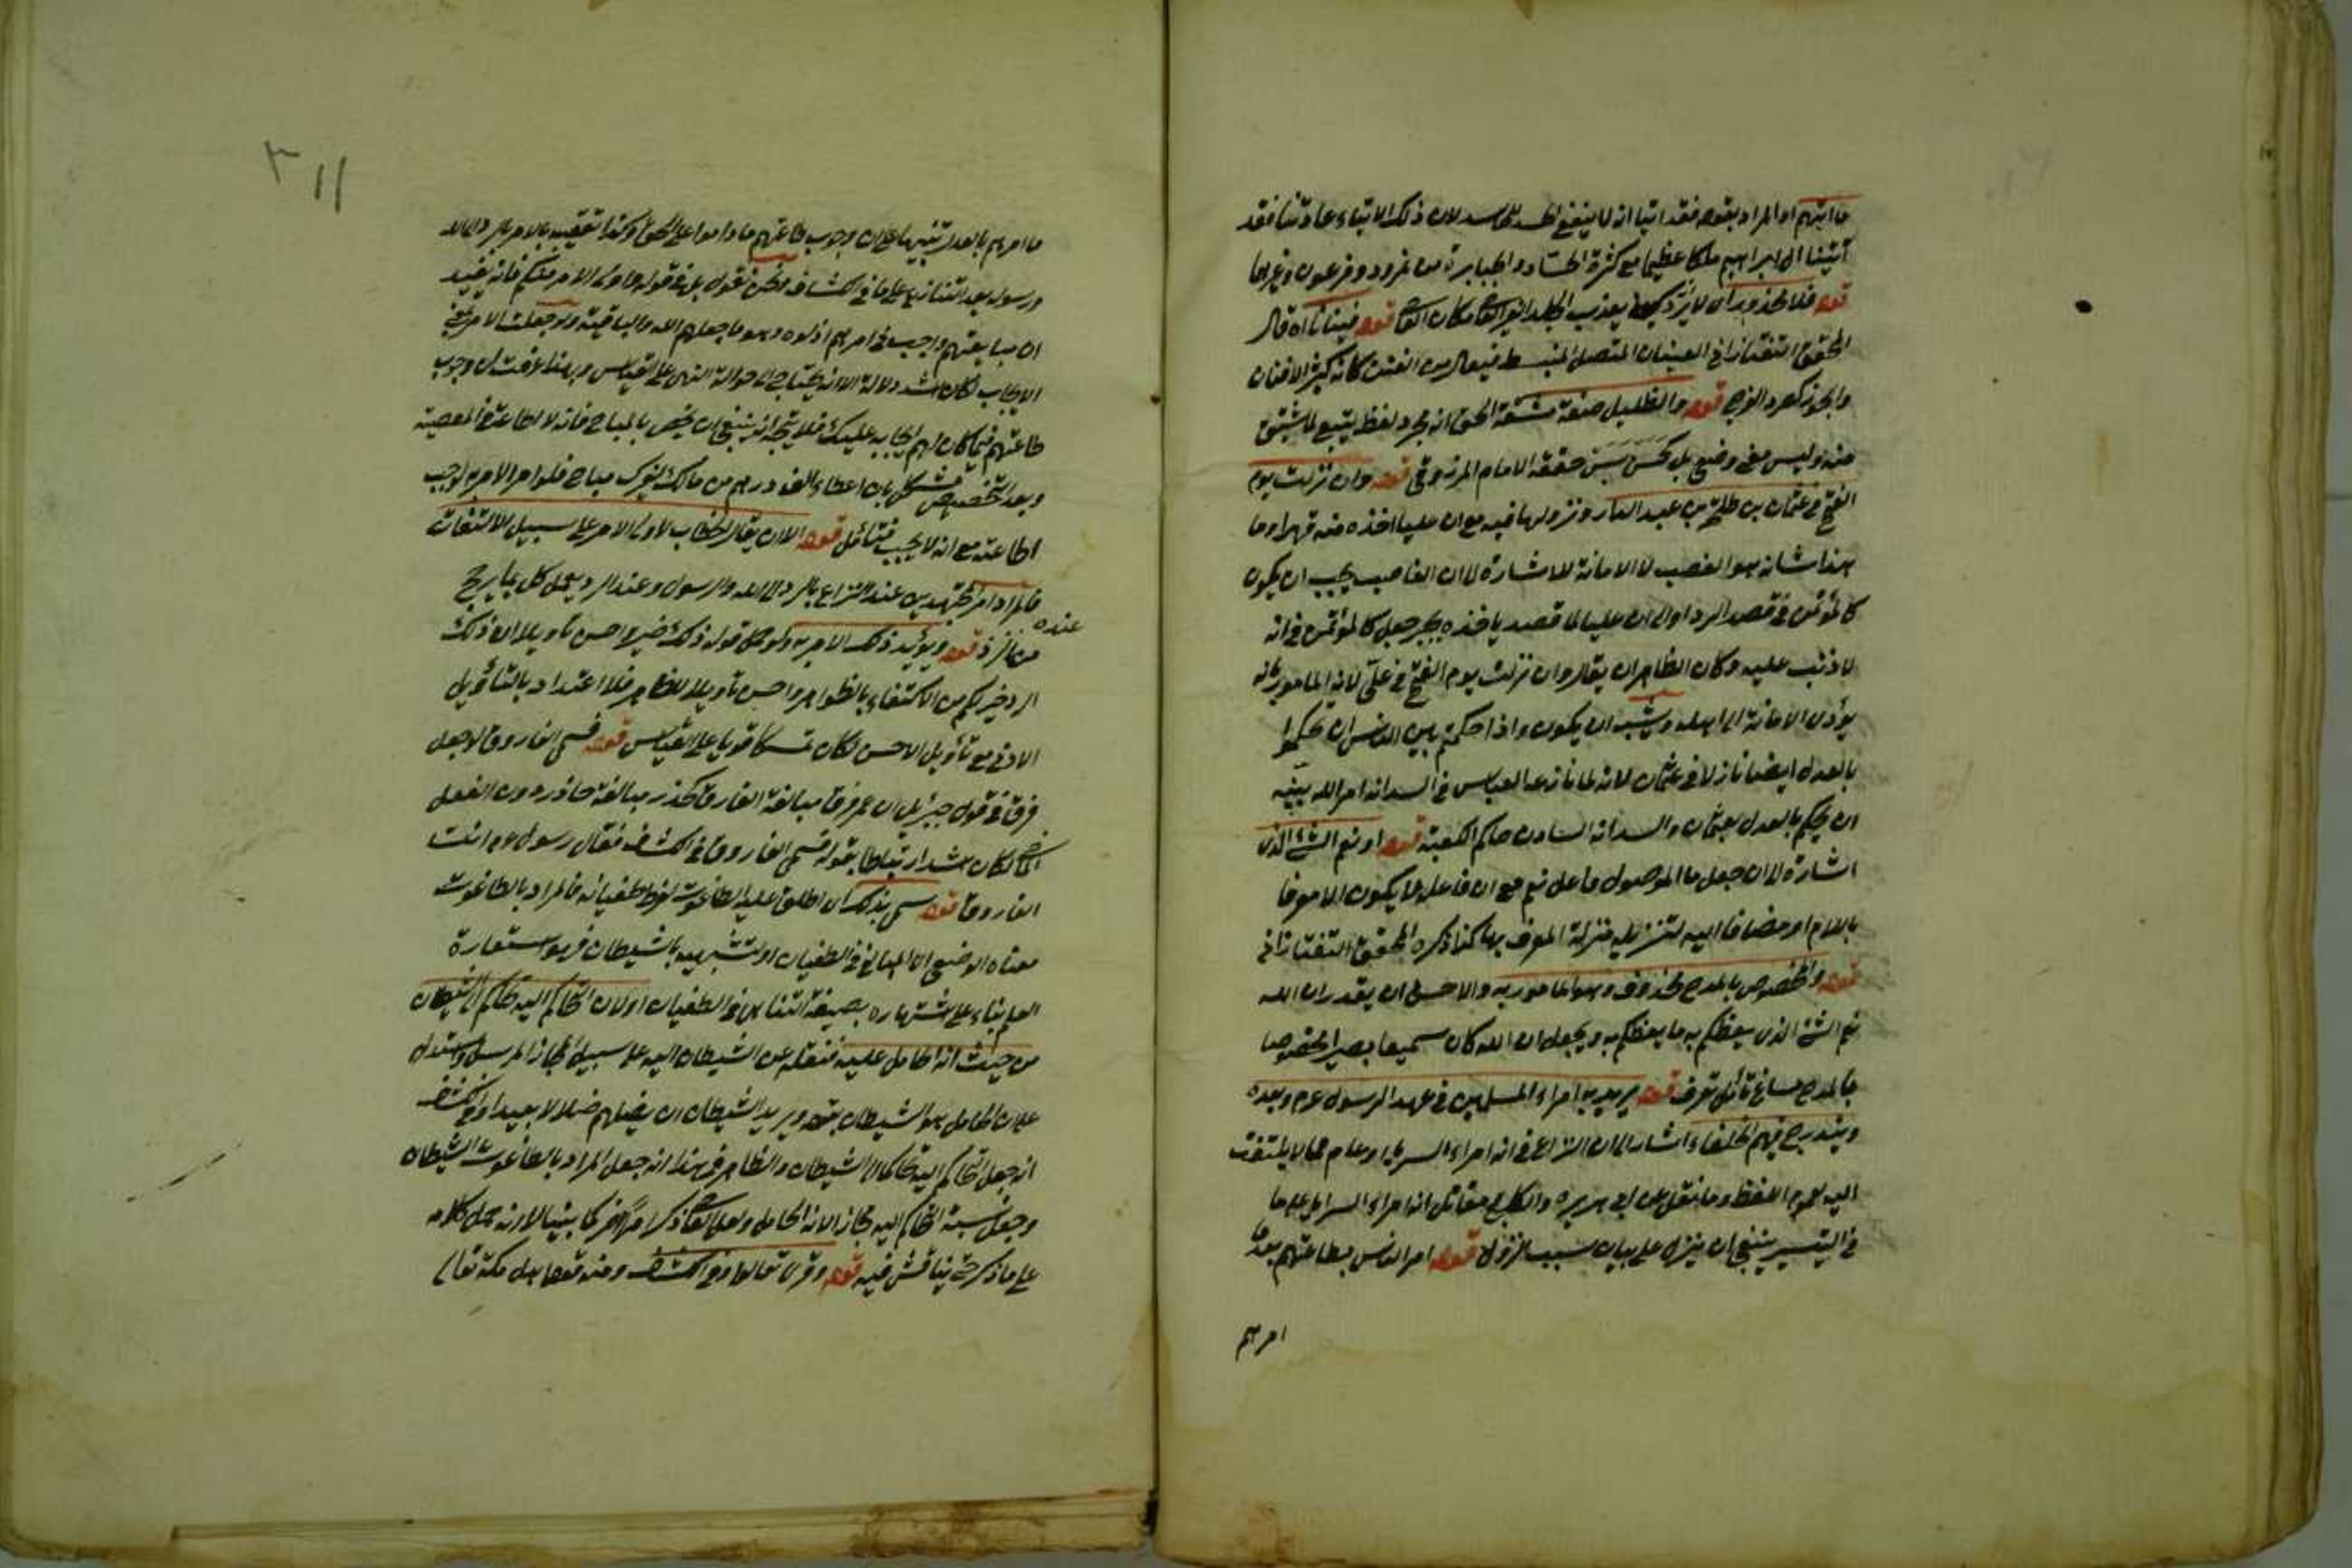 ما اتيهم او المراد بقوله فقد اتينا انه لا ينفع الحسد للحاسد لان ذلك الايتاء عادتنا فقد
آتينا آل ابراهيم ملكا عظيما مع كثرة الحساد والجبابرة من نمرود وفرعون وغيرهما
قوله فلا محذور ان لا يعذب الجلد الغير العاصي مكان العاصي قوله فينانا اه قال
المحقق التفتازاني الفينان المتصل المنبسط فيعال من الفنن كانه كثير الافنان
والجوز كصرد الفرج قوله والظليل صفة مشتقة الحق انه مجرد لفظ يتبع لما اشتق
منه وليس معنى وضعي بل كحسن بسن حققه الامام المرزوقي قوله وان نزلت يوم
الفتح في عثمان بن طلحة بن عبد الدار ونزولها فيه مع ان عليا اخذه منه قهرا وما
هذا شانه هو الغصب لا الامانة للاشارة لان الغاصب يجب ان يكون
كالمؤتمن في قصد الرد او الى ان عليا لما قصد باخذه الخير جعل كالمؤتمن في انه
لا ذنب عليه وكان الظاهر ان يقال وان نزلت يوم الفتح في علي لانه المامور بانه
يؤدي الامانة الى اهله ويشبه ان يكون واذا حكمتم بين الناس ان تحكموا
بالعدل ايضا نازلا في عثمان لانه لما نازعه العباس في السدانة امر الله نبيه
ان يحكم بالعدل بعثمان والسدانة السادن حاكم الكعبة قوله او نعم الشئ الذي
اشارة الى ان جعل ما الموصول فاعل نعم مع ان فاعله لا يكون الا معرفا
باللام او مضافا اليه لتنزيله منزلة المعرف بها كذا ذكره المحقق التفتازاني
قوله والمخصوص بالمدح محذوف وهو المامور به والاحسن ان يقدر ان الله
نعم الشئ الذي يعظكم به ما يعظكم به ويجعل ان الله كان سميعا بصيرا مخصوصا
بالمدح مساغ تأمل تعرف قوله يريد به امراء المسلمين في عهد الرسول عم وبعده
ويندرج فيهم الخلفاء اشار الى ان النزاع في انه امراء السرايا او عام مما لا يلتفت
اليه لعموم اللفظ وما نقل عن ابي هريرة والكلبي ومقاتل انه امراء السرايا على ما
في التيسير ينبغي ان ينزل على بيان سبب النزول قوله امر الناس بطاعتهم بعد ما
امرهم
٣١١
ما امرهم بالعدل تنبيها على ان وجوب طاعتهم ما داموا على الحق وكذا تعقيبه بالامر بالرد الى الله
ورسوله بعد التنازع على ما في الكشاف ونحن نقول بل في قوله واولي الامر منكم فانه يفيد
ان مبايعتهم واجب في امرهم اذ لوه وهو ما جعلهم الله والباقية ولو جعلت الامر بمعنى
الايجاب لكان اشد دلالة الا انه يحتاج الى حوالة النهي على القياس وبهذا عرفت ان وجوب
طاعتهم فيما كان لهم ايجابه عليك فلا يتجه انه ينبغي ان يخص بالمباح فانه لا اطاعة في المعصية
وبعد التخصيص مشكل بان اعطاء الف درهم من مالك لغيرك مباح فلو امر الامير لوجب
اطاعته مع انه لا يجب فتأمل قوله الا ان يقال الخطاب لاولي الامر على سبيل الالتفات
فالمراد امر المجتهدين عند التنازع بالرد الى الله والرسول وعند الرد يعمل كل بما يرجح
عنده
من مأخذ قوله ويؤيد ذلك الامر به ولو حمل قوله ذلك خير واحسن تأويلا ان ذلك
الرد خير لكم من الاكتفاء بالظواهر واحسن تأويلا للظاهر فلا اعتداد بالتأويل
الادنى مع تأويل الاحسن لكان تمسكا قويا على القياس قوله فسمي الفاروق لا جعل
فرق في قول جبرئيل ان عمر فرق مبالغة الفارق كحذر مبالغة حاذر دون الفعل
الماضي لكان اشد ارتباطا بقوله فسمي الفاروق في الكشاف فقال رسول عم انت
الفاروق قوله سمي بذلك اي اطلق عليه الطاغوت لفرط طغيانه فالمراد بالطاغوت
معناه الوضعي اي المبالغ في الطغيان او لتشبيهه بالشيطان فهو استعارة
العلم بناء على اشتهاره بصفة التناهي في الطغيان او لان التحاكم اليه تحاكم الى الشيطان
من حيث انه الحامل عليه فنقله عن الشيطان اليه على سبيل المجاز المرسل واستدل
على ان الحامل هو الشيطان بقوله ويريد الشيطان ان يضلهم ضلالا بعيدا وفي الكشاف
انه جعل التحاكم اليه تحاكما الى الشيطان والظاهر في هذا انه جعل المراد بالطاغوت الشيطان
وجعل نسبة التحاكم اليه مجازا لانه الحامل ولعل القاضي ذكر امرا آخر كما بينا لا انه حمل كلامه
على ما ذكر حتى يناقش فيه قوله وقرئ تعالوا وفي الكشاف ومنه قول اهل مكة تعالي